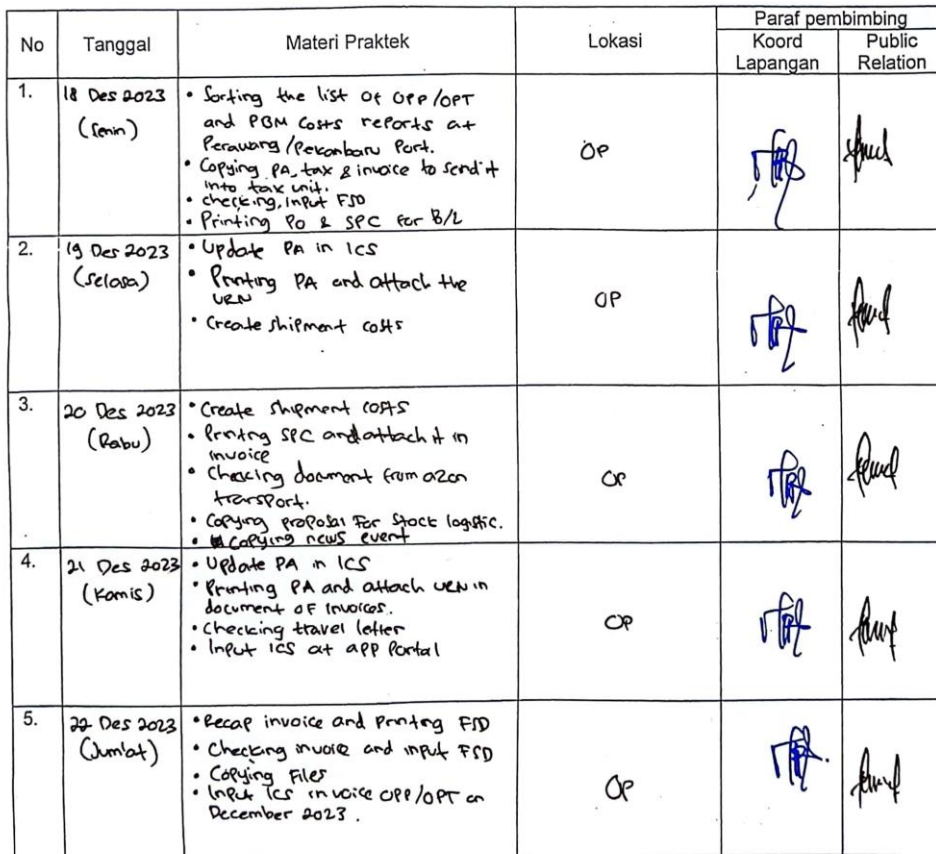 Paraf pembimbing
No Tanggal Materi Praktek Lokasi Koord Lapangan Public Relation
1. 18 Des 2023 (Senin)
• Sorting the list of OPP/OPT
and PBM costs reports at
Perawang/Pekanbaru Port.
• Copying PA, tax & invoice to send it
into tax unit.
• checking, input FSD
• Printing PO & SPC for B/L
OP
2. 19 Des 2023 (Selasa)
• Update PA in ICS
• Printing PA and attach the
URN
• Create shipment costs
OP
3. 20 Des 2023 (Rabu)
• Create shipment costs
• Printing SPC and attach it in
invoice
• Checking document from azon
transport.
• Copying proposal for stock logistic.
• Copying news event
OP
4. 21 Des 2023 (Kamis)
• Update PA in ICS
• Printing PA and attach URN in
document of invoices.
• Checking travel letter
• Input ICS at app portal
OP
5. 22 Des 2023 (Jum'at)
• Recap invoice and printing FSD
• Checking invoice and input FSD
• Copying Files
• Input ICS invoice OPP/OPT on
December 2023.
OP